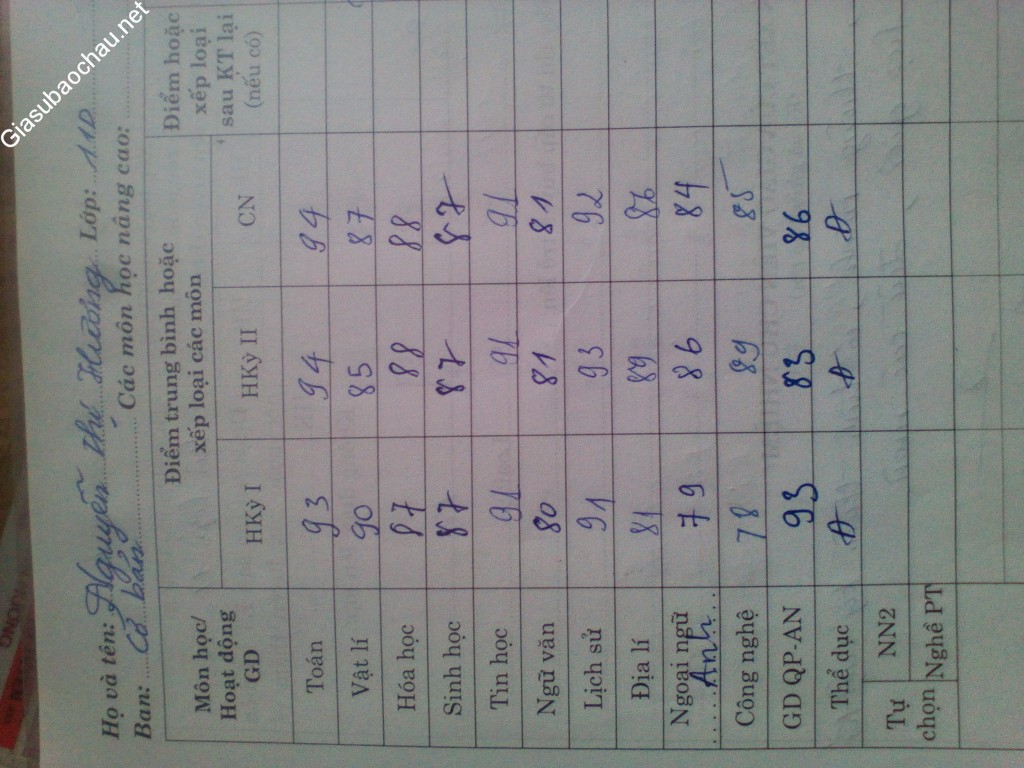 Giasubaochau.net
Họ và tên: Nguyễn Thi Hường Lớp: 11D
Ban: Cơ bản Các môn học nâng cao:
Môn học/ Hoạt động GD Điểm trung bình hoặc xếp loại các môn Điểm hoặc xếp loại sau KT lại (nếu có)
HKỳ I HKỳ II CN
Toán 93 94 94
Vật lí 90 85 87
Hóa học 87 88 88
Sinh học 87 87 87
Tin học 91 91 91
Ngữ văn 80 81 81
Lịch sử 91 93 92
Địa lí 81 89 86
Ngoại ngữ Anh 79 86 84
Công nghệ 78 89 85
GD QP-AN 93 83 86
Thể dục Đ Đ Đ
Tự chọn NN2
Nghề PT